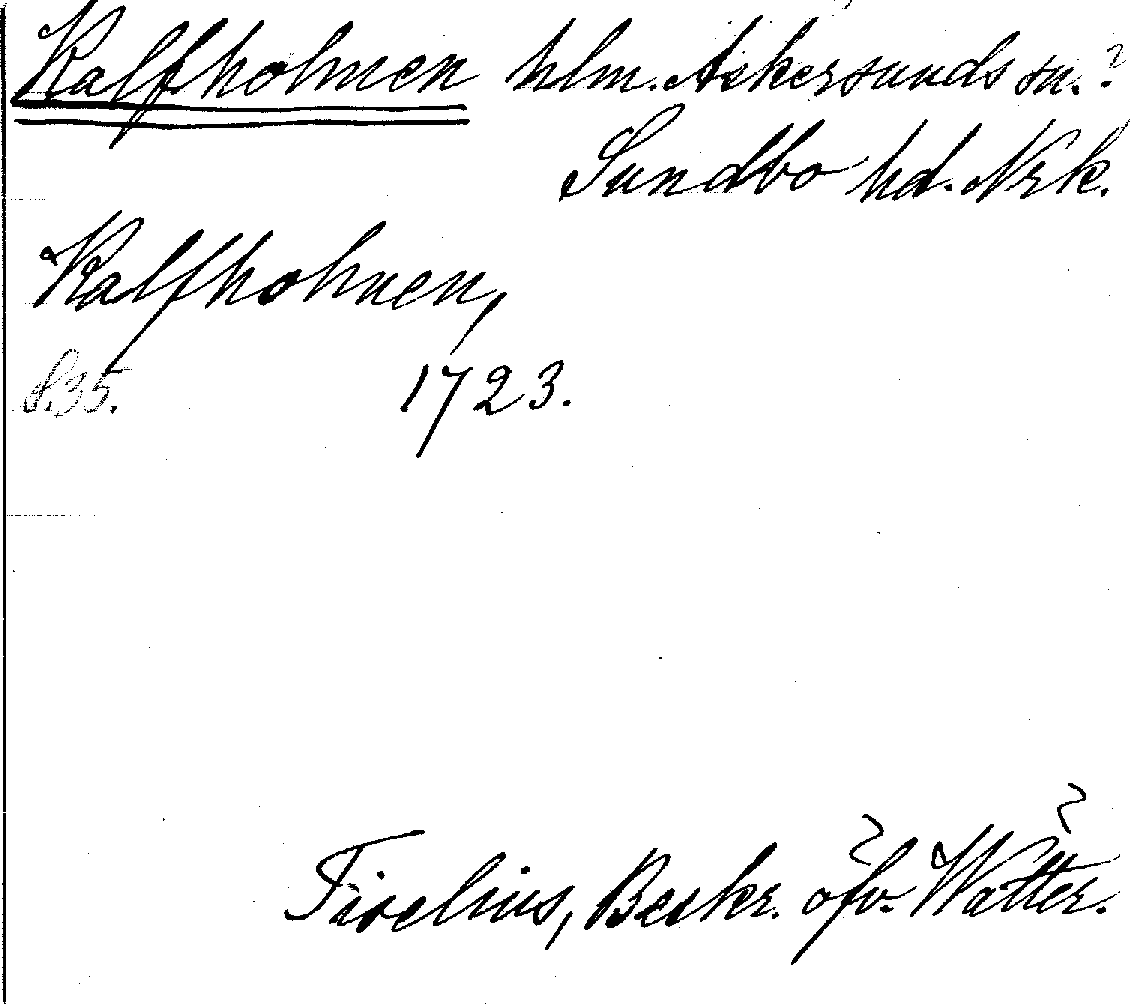 Kalfholmen hlm. Askersunds sn.?
Sundbo hd. Nrk.
Kalfholmen,
s. 35. 1723.
Tiselius, Beskr. öfv. Wätter.